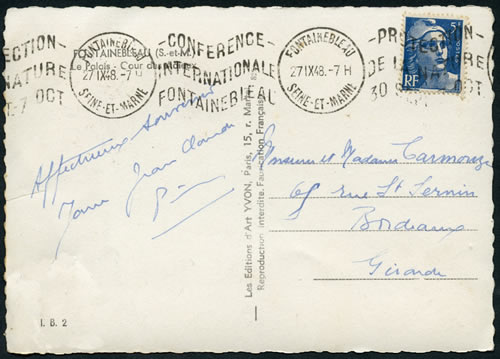 FONTAINEBLEAU (S.-et-M.)
Le Palais - Cour des
ECTION -
NATURE
T-7 OCT
FONTAINEBLEAU
27 IX 48 - 7 H
SEINE-ET-MARNE
CONFERENCE
INTERNATIONALE
FONTAINEBLEAU
FONTAINEBLEAU
27 IX 48 - 7 H
SEINE-ET-MARNE
PROTECTION -
DE LA NATURE
30 SEPT
RF
Affectueux souvenir
Jean Claude
Les Editions d'Art YVON, Paris, 15, r. Martel
Reproduction interdite. Fabrication Française
Monsieur et Madame Carmouze
65 rue St Sernin
Bordeaux
Gironde
I. B. 2